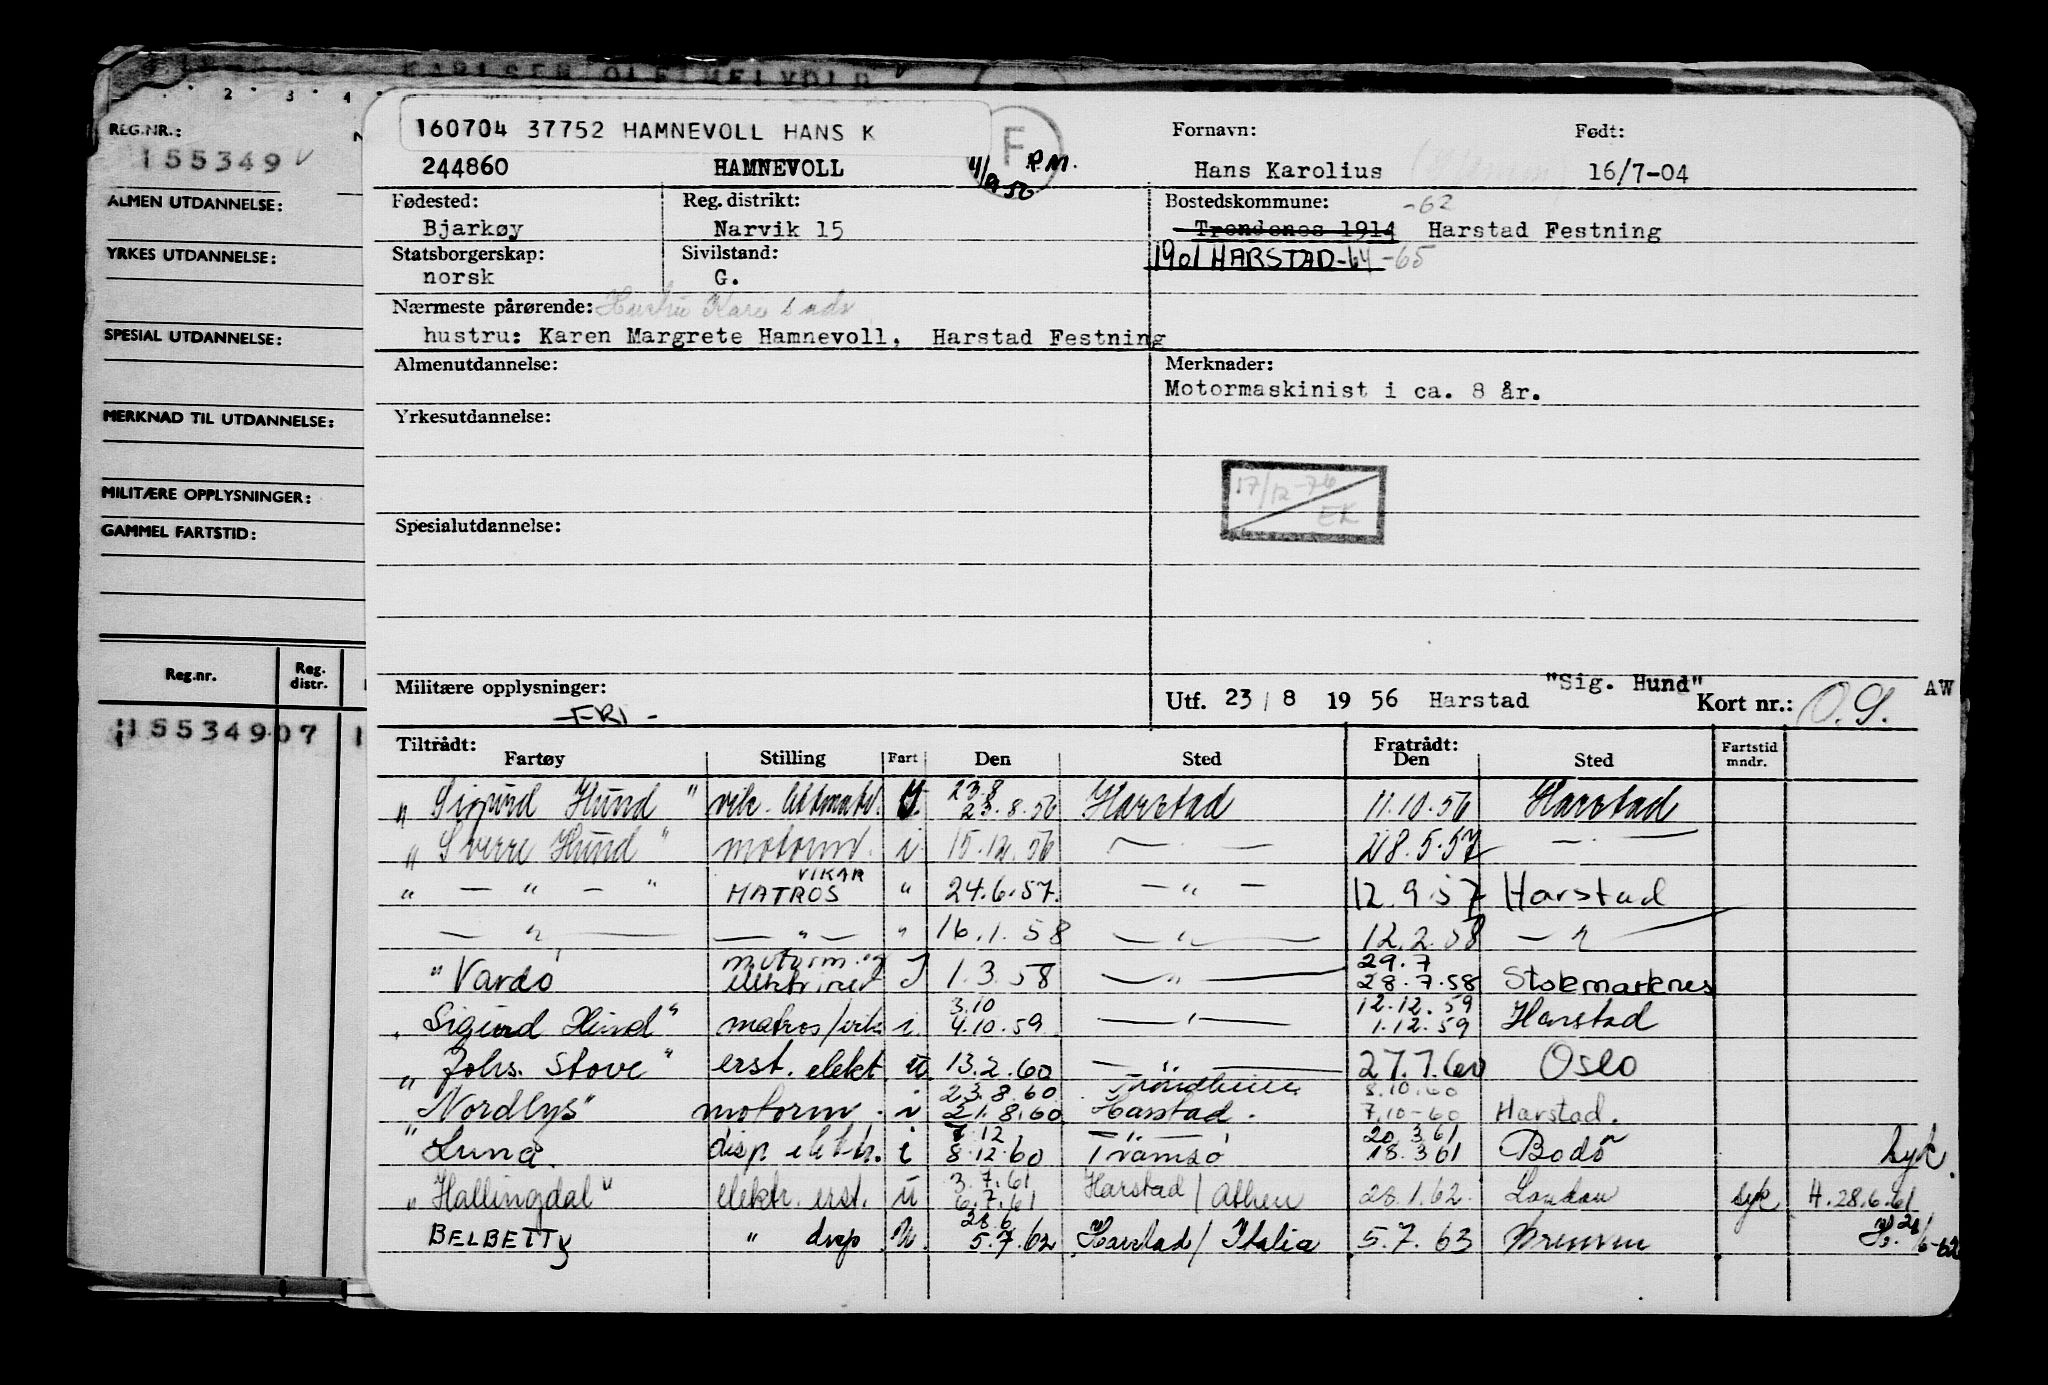 KARLSEN OLE
2 3 4
REG.NR.:
155349 V
ALMEN UTDANNELSE:
YRKES UTDANNELSE:
SPESIAL UTDANNELSE:
MERKNAD TIL UTDANNELSE:
MILITÆRE OPPLYSNINGER:
GAMMEL FARTSTID:
Reg.nr. Reg. distr.
155349 07 1
160704 37752 HAMNEVOLL HANS K
F
244860 HAMNEVOLL P.M.
Fornavn: Født:
Hans Karolius 16/7-04
Fødested: Reg. distrikt: Bostedskommune: -62
Bjarkøy Narvik 15 Trondenes 1914 Harstad Festning
Statsborgerskap: Sivilstand: 1901 HARSTAD-64-65
norsk G.
Nærmeste pårørende:
hustru: Karen Margrete Hamnevoll, Harstad Festning
Almenutdannelse: Merknader:
Motormaskinist i ca. 8 år.
Yrkesutdannelse:
17/12-74
EK
Spesialutdannelse:
Militære opplysninger: "Sig. Hund" AW
-FRI- Utf. 23/8 1956 Harstad Kort nr.: O.S.
Tiltrådt: Fratrådt: Fartstid
Fartøy Stilling Fart Den Sted Den Sted mndr.
23.8
"Sigurd Hund" vik. 23.8.56 Harstad 11.10.56 Harstad
"Sverre Hund" motorm. i 15.12.56 — " — 28.5.57 — " —
VIKAR
" — " — " MATROS " 24.6.57. — " — 12.9.57 Harstad
— " — — " — " 16.1.58 — " — 12.2.58 — " —
motorm. og 29.7
"Vardø elektriker I 1.3.58 — " — 28.7.58 Stokmarknes
3.10 12.12.59
"Sigurd Hund" matros/vik i. 4.10.59 — " — 1.12.59 Harstad
"Johs. Stove" erst. elekt. u 13.2.60 — " — 27.7.60 Oslo
23.8.60 Trondheim 8.10.60
"Nordlys" motorm. i 21.8.60 Harstad. 7.10-60 Harstad.
7.12 — " — 20.3.61
"Luna. disp elektr. i 8.12.60 Tromsø 18.3.61 Bodø syk.
3.7.61
"Hallingdal" elektr. erst. u 6.7.61 Harstad/Athen 28.1.62. London syk H.28.6.61
28.6
BELBETTY " disp u. 5.7.62 Harstad/Italia 5.7.63 Bremen